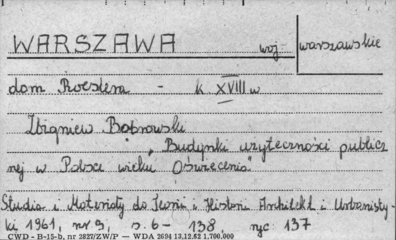 WARSZAWA woj- warszawskie
dom Roeslera - k XVIII w
Zbigniew Bobrowski
„Budynki użyteczności publicz
nej w Polsce wieku Oświecenia"
Studia i Materiały do Teorii i Historii Architekt i Urbanisty-
ki 1961, nr 3, s. 6- 138, ryc 137
CWD - B-15-b, nr 2827/ZW/P — WDA 2694 13.12.62 1.700.000